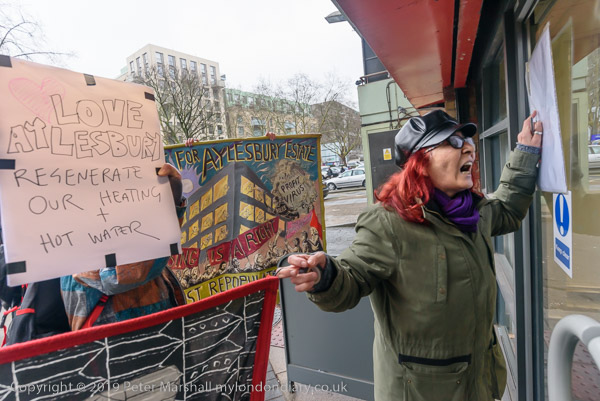 LOVE
AYLESBURY
REGENERATE
OUR HEATING
+
HOT WATER
FOR AYLESBURY ESTATE
PROFIT
VIRUS
IS A RIGHT
ST REPOPU
Copyright © 2019 Peter Marshall mylondondiary.co.uk